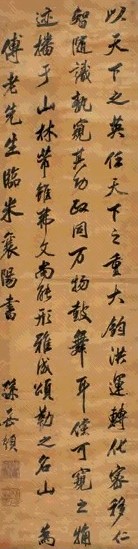 以天下之英任天下之重大鈞洪運轉化密移仁
智隨識孰窺其功取同萬物鼓舞耳倖可窺之
迹播于山林芾雖弗文尚能形雅成頌勒之名山 為
傅老先生臨米襄陽書
孫岳頒